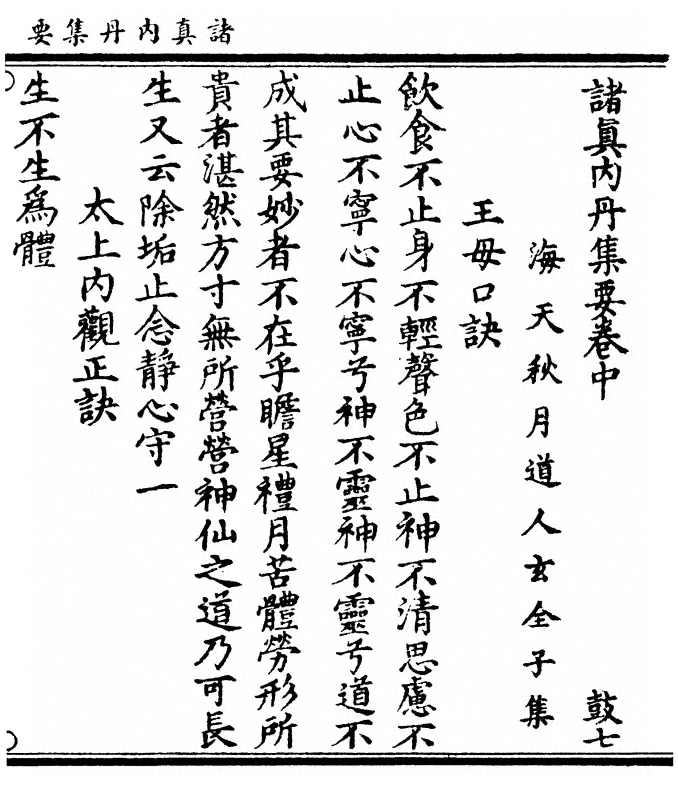 諸真内丹集要
諸眞内丹集要卷中 鼓七
海天秋月道人玄全子集
王母口訣
飲食不止身不輕聲色不止神不清思慮不
止心不寧心不寧兮神不靈神不靈兮道不
成其要妙者不在乎瞻星禮月苦體勞形所
貴者湛然方寸無所營營神仙之道乃可長
生又云除垢止念靜心守一
太上内觀正訣
生不生爲體